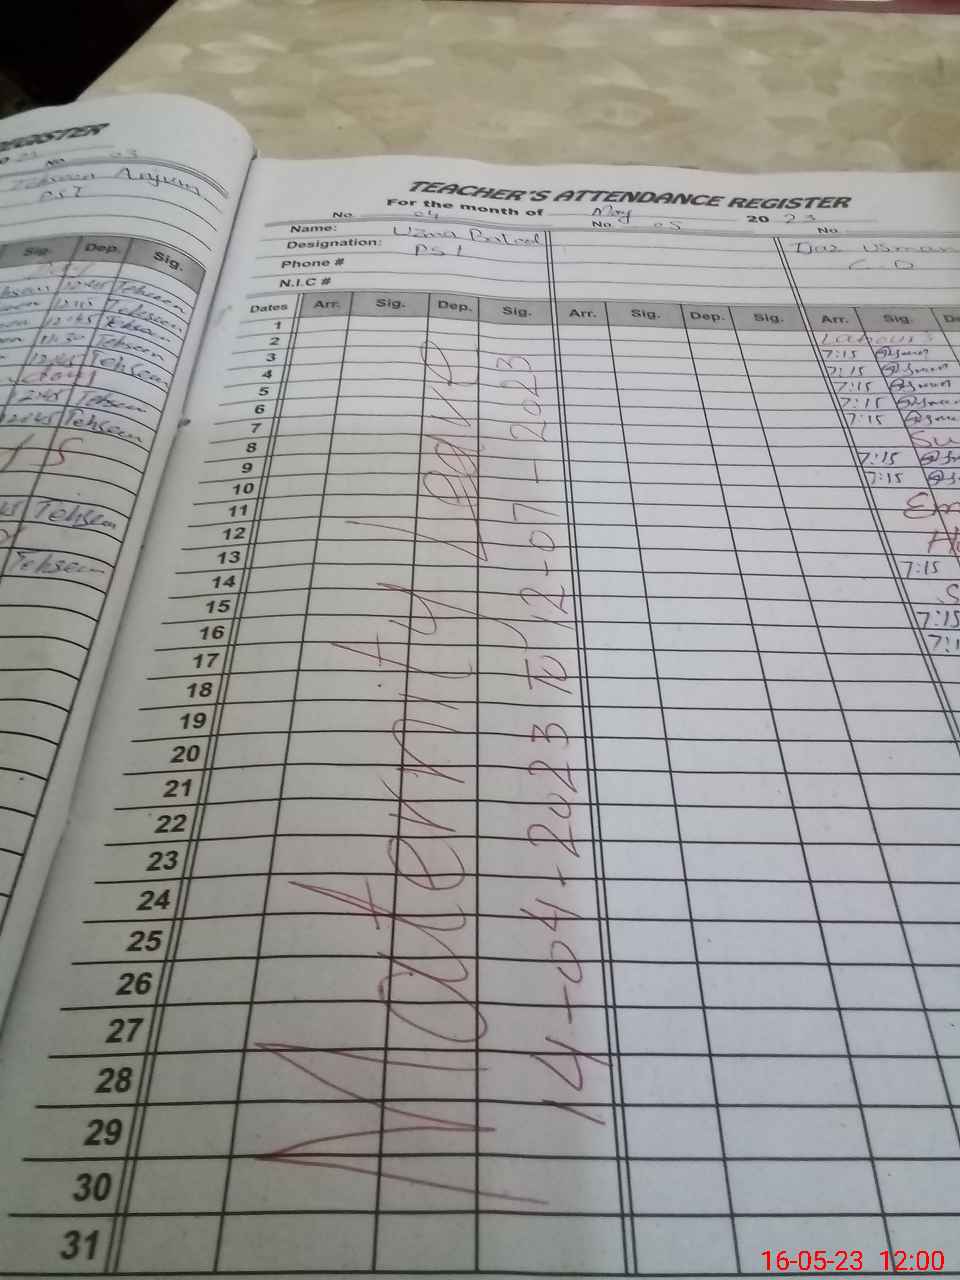 REGISTER
No. 03
Tehseen Anjum
PST
Sig. Dep. Sig.
12:45 Tehseen
12:45 Tehseen
12:45 Tehseen
11:30 Tehseen
12:45 Tehseen
12:45 Tehseen
12:45 Tehseen
Tehseen
Tehseen
TEACHER'S ATTENDANCE REGISTER
For the month of May 2023
No. 04 No. 05 No.
Name: Uzma Batool Ijaz Usman
Designation: PST
Phone #
N.I.C #
Dates Arr. Sig. Dep. Sig. Arr. Sig. Dep. Sig. Arr. Sig. De
1 Labour's
2 7:15
3 7:15
4 7:15
5 7:15
6 7:15
7 Su
8 7:15
9 7:15
10
11
12
13 7:15
14 S
15 7:15
16 7:1
17
18
19
20
21
22
23
24
25
26
27
28
29
30
31
Maternity Leave
14-04-2023 To 12-07-2023
16-05-23 12:00